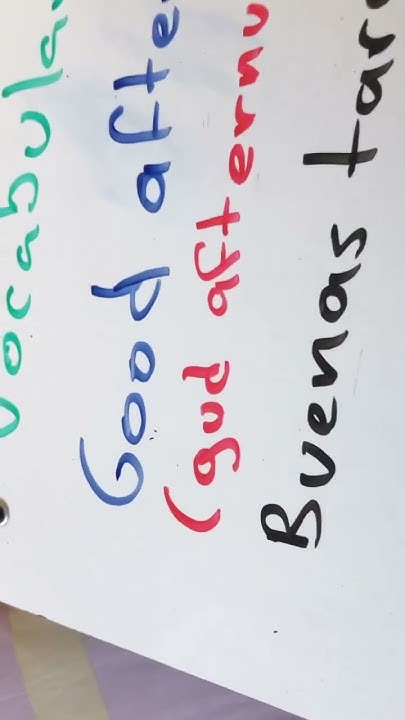 Vocabula
Good afte
(gud afternu
Buenas tar